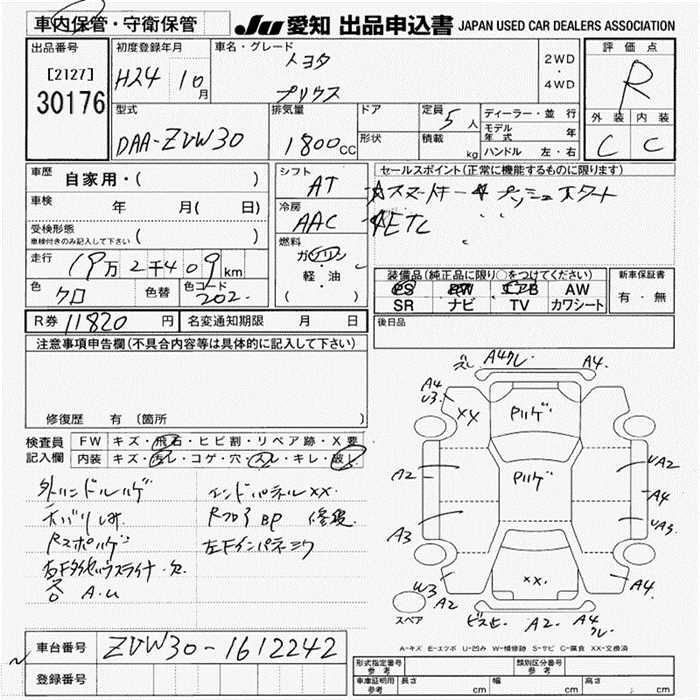 車内保管・守衛保管
JU 愛知 出品申込書 JAPAN USED CAR DEALERS ASSOCIATION
出品番号
[2127]
30176
初度登録年月
H24 10月
車名・グレード
トヨタ
プリウス
2WD
・
4WD
評価点
R
外装 内装
C C
型式
DAA-ZVW30
排気量
1800cc
ドア
形状
定員 5人
積載 kg
ディーラー・並行
モデル年式 年
ハンドル 左・右
車歴
自家用・( )
車検 年 月( 日)
受検形態
車検付きのみ記入して下さい ( )
走行 19万2千409km
色 クロ 色替 色コード 202
シフト
AT
冷房
AAC
燃料
ガソリン
軽・油
( )
セールスポイント(正常に機能するものに限ります)
スマートキー プッシュスタート
ETC
装備品(純正品に限り○をつけてください)
PS PW エアB AW
SR ナビ TV カワシート
新車保証書
有・無
R券 11820円
名変通知期限 月 日
後日品
注意事項申告欄(不具合内容等は具体的に記入して下さい)
修復歴 有 〔箇所 〕
検査員記入欄
FW キズ・飛石・ヒビ割・リペア跡・X要
内装 キズ・汚レ・コゲ・穴・スレ・キレ・破レ
外ハンドルハゲ
天バリしみ
Rスポハゲ
A.U
エンドパネルXX.
Rフロア BP 修跡
左Fインパネミワ
A4 A4
A4
U3
XX
Pハゲ
Pハゲ
XX.
A2
A3
UA2
A4
UA3
W3
A2
A4
スペア
A2
A4
A-キズ E-エクボ U-凹み W-補修跡 S-サビ C-腐食 XX-交換済
車台番号 ZVW30-1612242
登録番号
形式指定番号 参考
類別区分番号 参考
車庫証明用 参考 長さ cm 幅 cm 高さ cm